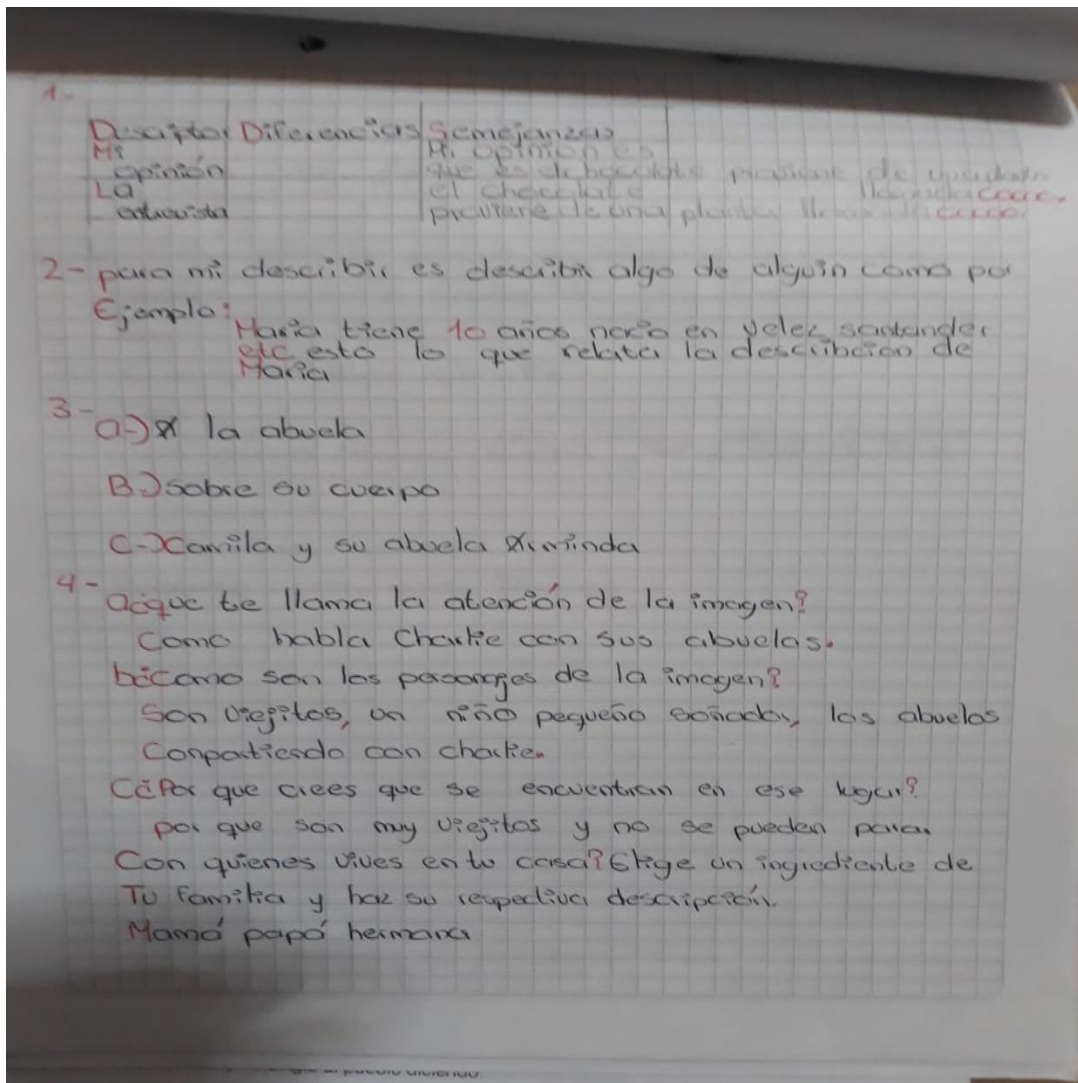 1-
Descriptor Diferencias Semejanzas
Mi Mi opinión es
opinión que es chocolate proviene de una planta
La el chocolate llamada cacao.
entrevista proviene de una planta llamada cacao
2- para mi describir es describir algo de alguin como por
Ejemplo:
Maria tiene 10 años nacio en velez santander
etc esto lo que relata la describcion de
Maria
3-
a-) la abuela
B-) sobre su cuerpo
C-) Camila y su abuela
4-
a¿que te llama la atención de la imagen?
Como habla Charlie con sus abuelas.
b¿cómo son los pasonajes de la imagen?
Son viegitos, un niño pequeño soñador, los abuelos
Conpartiendo con charlie.
C¿Por que crees que se encuentran en ese lugar?
por que son muy viegitos y no se pueden parar.
Con quienes vives en tu casa? Elige un ingrediente de
Tu familia y haz su respectiva descripción.
Mamá papá hermana